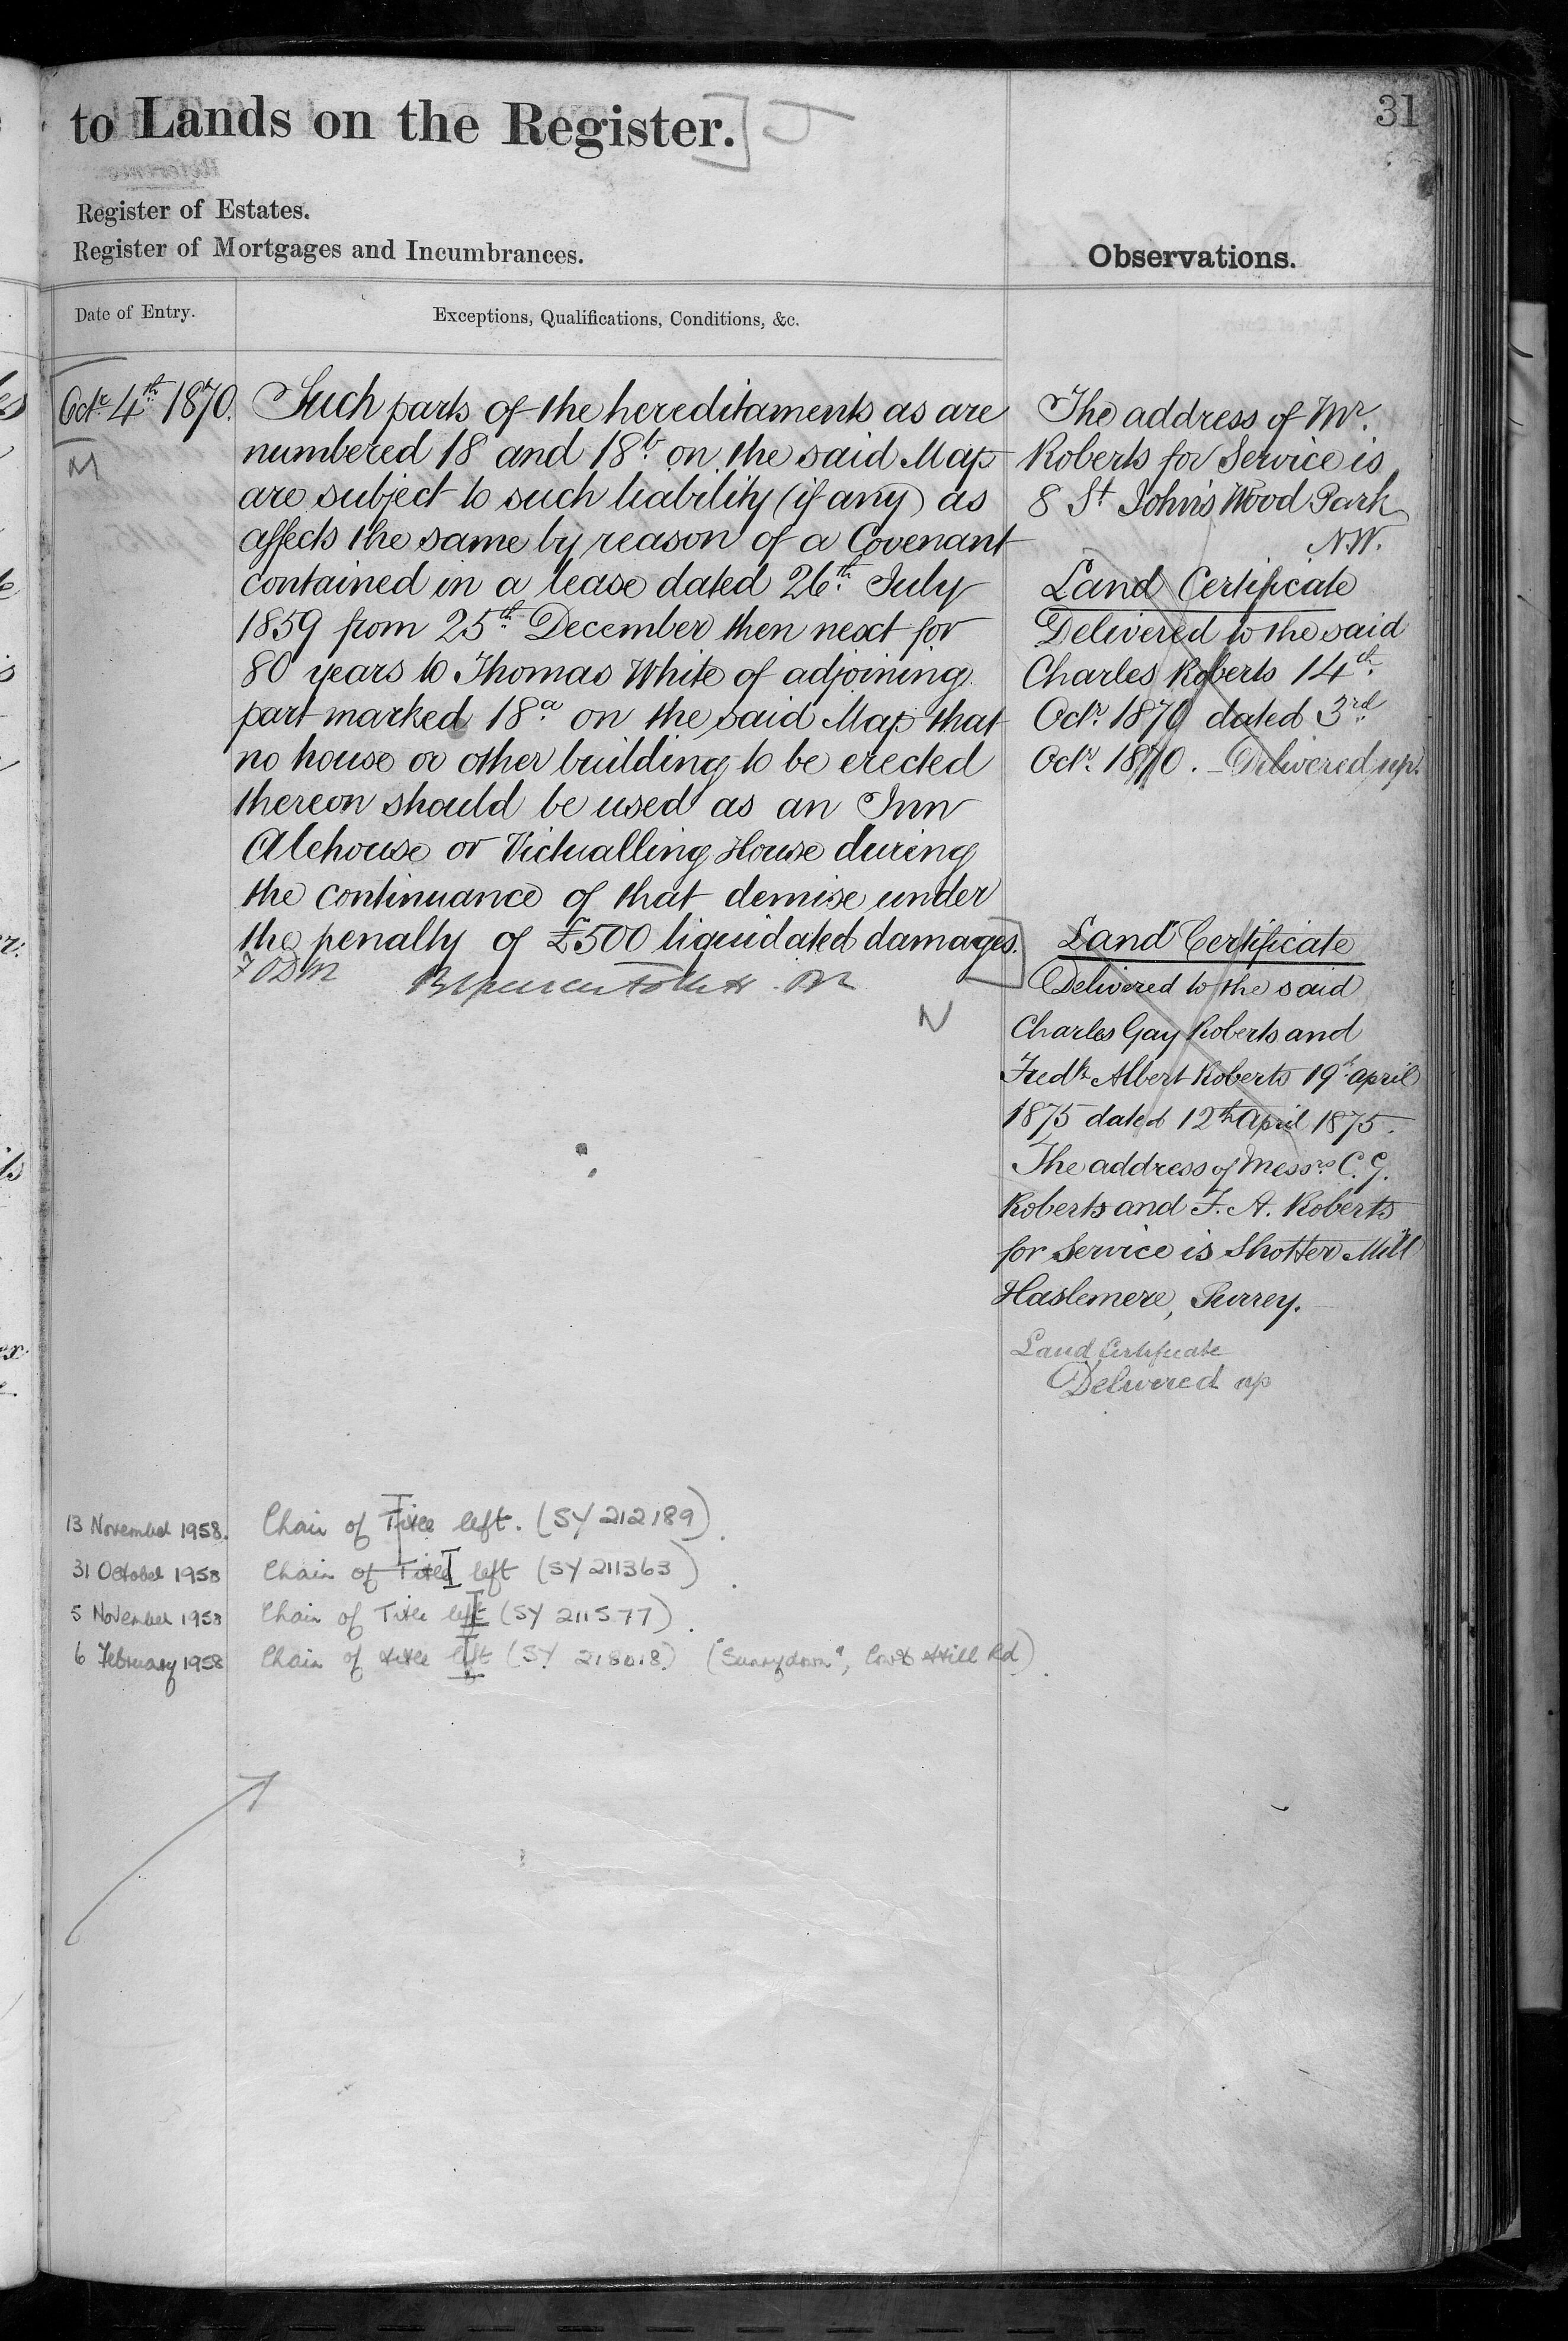 to Lands on the Register.] J
31
Register of Estates.
Register of Mortgages and Incumbrances.
Observations.
Date of Entry.
Exceptions, Qualifications, Conditions, &c.
Octr. 4th. 1870.
M
Such parts of the hereditaments as are
numbered 18 and 18b. on the said Map
are subject to such liability (if any) as
affects the same by reason of a Covenant
contained in a lease dated 26th. July
1859 from 25th. December then next for
80 years to Thomas White of adjoining
part marked 18a. on the said Map that
no house or other building to be erected
thereon should be used as an Inn
Alehouse or Victualling House during
the continuance of that demise under
the penalty of £500 liquidated damages.]
N
The address of Mr.
Roberts for Service is
8 St. John's Wood Park
N.W.
Land Certificate
Delivered to the said
Charles Roberts 14th.
Octr. 1870 dated 3rd
Octr. 1870. - Delivered up.
Land Certificate
Delivered to the said
Charles Gay Roberts and
Fredk. Albert Roberts 19th April
1875 dated 12th April 1875.
The address of Messrs. C. G.
Roberts and F. A. Roberts
for Service is Shotter Mill
Haslemere, Surrey.
Land Certificate
Delivered up
13 November 1958. Chain of Title left. (SY 212189).
31 October 1958 Chain of Title left (SY 211363).
5 November 1958 Chain of Title left (SY 211577).
6 February 1958 Chain of title left (SY 218018) ("Sunnydown", Hill Rd).